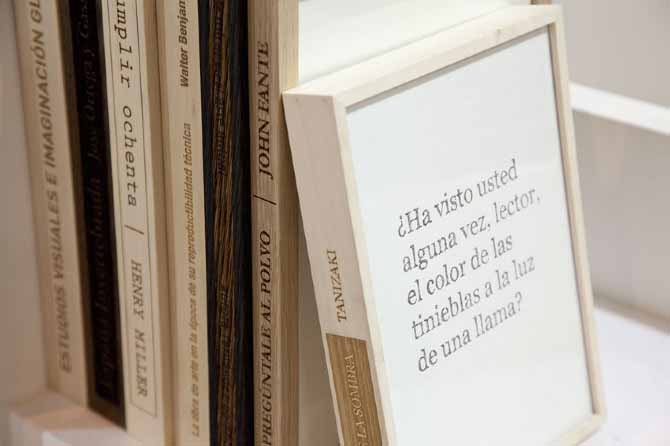 ESTUDIOS VISUALES E IMAGINACIÓN GL
España Invertebrada José Ortega y Gass
umplir ochenta | HENRY MILLER
La obra de arte en la época de su reproductibilidad técnica Walter Benjam
PREGÚNTALE AL POLVO | JOHN FANTE
TANIZAKI
LA SOMBRA
¿Ha visto usted
alguna vez, lector,
el color de las
tinieblas a la luz
de una llama?